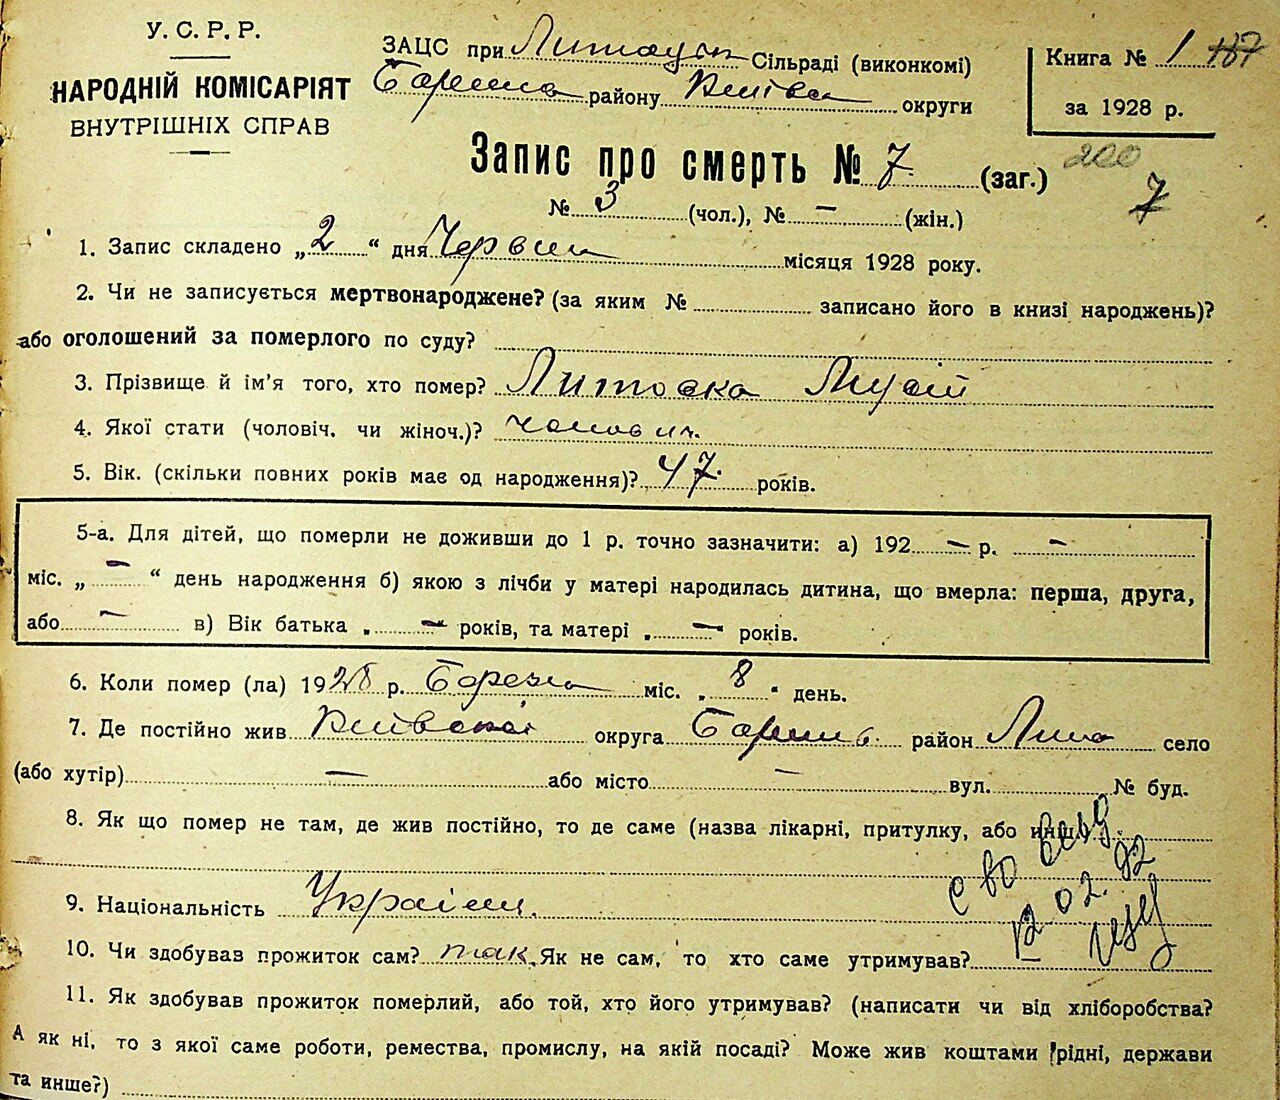 У. С. Р. Р.
НАРОДНІЙ КОМІСАРІЯТ
ВНУТРІШНІХ СПРАВ
ЗАЦС при Сільраді (виконкомі)
району округи
Книга № 1
за 1928 р.
Запис про смерть № 7 (заг.) 200
7
№ 3 (чол.), № — (жін.)
1. Запис складено „2“ дня Червня місяця 1928 року.
2. Чи не записується мертвонароджене? (за яким № записано його в книзі народжень)?
або оголошений за померлого по суду?
3. Прізвище й ім’я того, хто помер? Литовка Мусій
4. Якої стати (чоловіч. чи жіноч.)? чоловіч.
5. Вік. (скільки повних років має од народження)? 47 років.
5-а. Для дітей, що померли не доживши до 1 р. точно зазначити: а) 192 — р. —
міс. „ — “ день народження б) якою з лічби у матері народилась дитина, що вмерла: перша, друга,
або — в) Вік батька „ — “ років, та матері „ — “ років.
6. Коли помер (ла) 1928 р. Березня міс. „ 8 “ день.
7. Де постійно жив Київської округа район село
(або хутір) — або місто — вул. № буд.
8. Як що помер не там, де жив постійно, то де саме (назва лікарні, притулку, або инш.)
9. Національність Українец.
10. Чи здобував прожиток сам? так. Як не сам, то хто саме утримував?
11. Як здобував прожиток померлий, або той, хто його утримував? (написати чи від хліборобства?
А як ні, то з якої саме роботи, ремества, промислу, на якій посаді? Може жив коштами рідні, держави
та инше?)